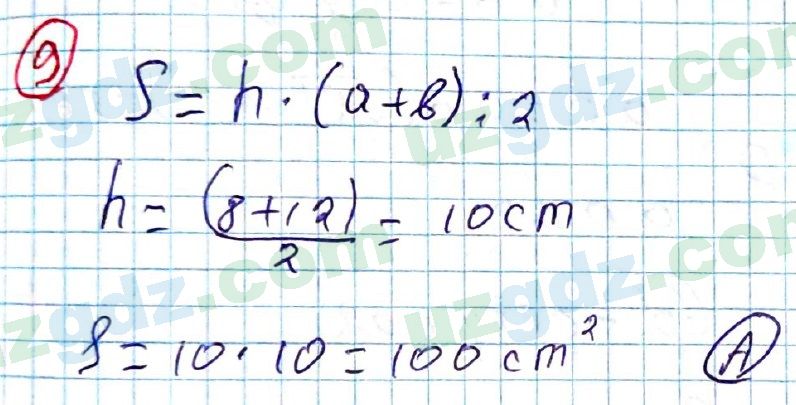 9
S = h · (a + b) : 2
h = (8+12)/2 = 10 cm
S = 10 · 10 = 100 cm² A
uzgdz.com
uzgdz.com
uzgdz.com
uzgdz.com